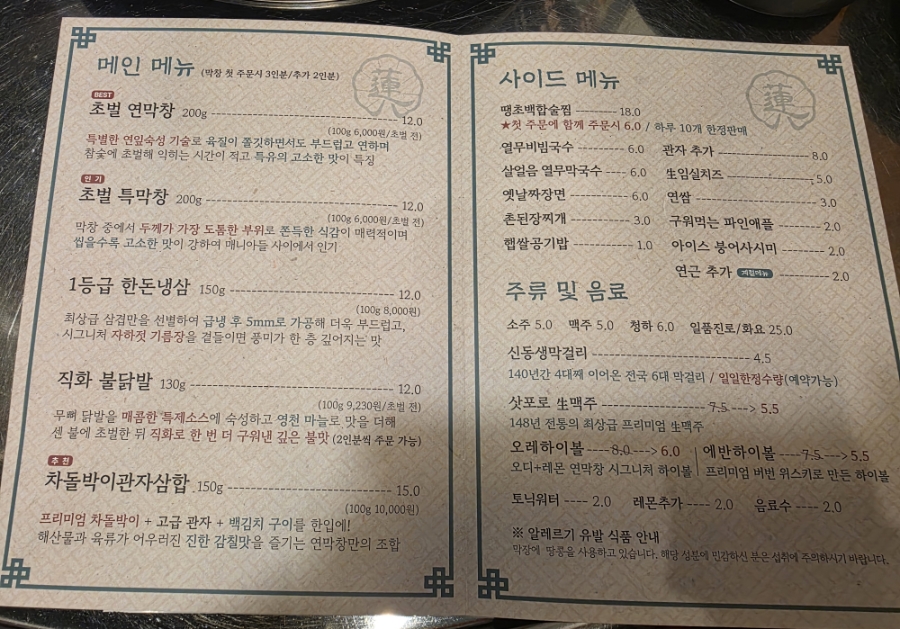 메인 메뉴 (막창 첫 주문시 3인분/추가 2인분)
蓮
BEST
초벌 연막창 200g 12.0
(100g 6,000원/초벌 전)
특별한 연잎숙성 기술로 육질이 쫄깃하면서도 부드럽고 연하며
참숯에 초벌해 익히는 시간이 적고 특유의 고소한 맛이 특징
인기
초벌 특막창 200g 12.0
(100g 6,000원/초벌 전)
막창 중에서 두께가 가장 도톰한 부위로 쫀득한 식감이 매력적이며
씹을수록 고소한 맛이 강하여 매니아들 사이에서 인기
1등급 한돈냉삼 150g 12.0
(100g 8,000원)
최상급 삼겹만을 선별하여 급냉 후 5mm로 가공해 더욱 부드럽고,
시그니처 자하젓 기름장을 곁들이면 풍미가 한 층 깊어지는 맛
직화 불닭발 130g 12.0
(100g 9,230원/초벌 전)
무뼈 닭발을 매콤한 특제소스에 숙성하고 영천 마늘로 맛을 더해
센 불에 초벌한 뒤 직화로 한 번 더 구워낸 깊은 불맛 (2인분씩 주문 가능)
추천
차돌박이관자삼합 150g 15.0
(100g 10,000원)
프리미엄 차돌박이 + 고급 관자 + 백김치 구이를 한입에!
해산물과 육류가 어우러진 진한 감칠맛을 즐기는 연막창만의 조합
사이드 메뉴
蓮
땡초백합술찜 18.0
★첫 주문에 함께 주문시 6.0 / 하루 10개 한정판매
열무비빔국수 6.0
살얼음 열무막국수 6.0
옛날짜장면 6.0
촌된장찌개 3.0
햅쌀공기밥 1.0
관자 추가 8.0
生임실치즈 5.0
연쌈 3.0
구워먹는 파인애플 2.0
아이스 붕어사시미 2.0
연근 추가 계절메뉴 2.0
주류 및 음료
소주 5.0 맥주 5.0 청하 6.0 일품진로/화요 25.0
신동생막걸리 4.5
140년간 4대째 이어온 전국 6대 막걸리 / 일일한정수량(예약가능)
삿포로 生맥주 7.5 ---> 5.5
148년 전통의 최상급 프리미엄 生맥주
오레하이볼 8.0 ---> 6.0
오디+레몬 연막창 시그니처 하이볼
에반하이볼 7.5 ---> 5.5
프리미엄 버번 위스키로 만든 하이볼
토닉워터 2.0 레몬추가 2.0 음료수 2.0
※ 알레르기 유발 식품 안내
막장에 땅콩을 사용하고 있습니다. 해당 성분에 민감하신 분은 섭취에 주의하시기 바랍니다.